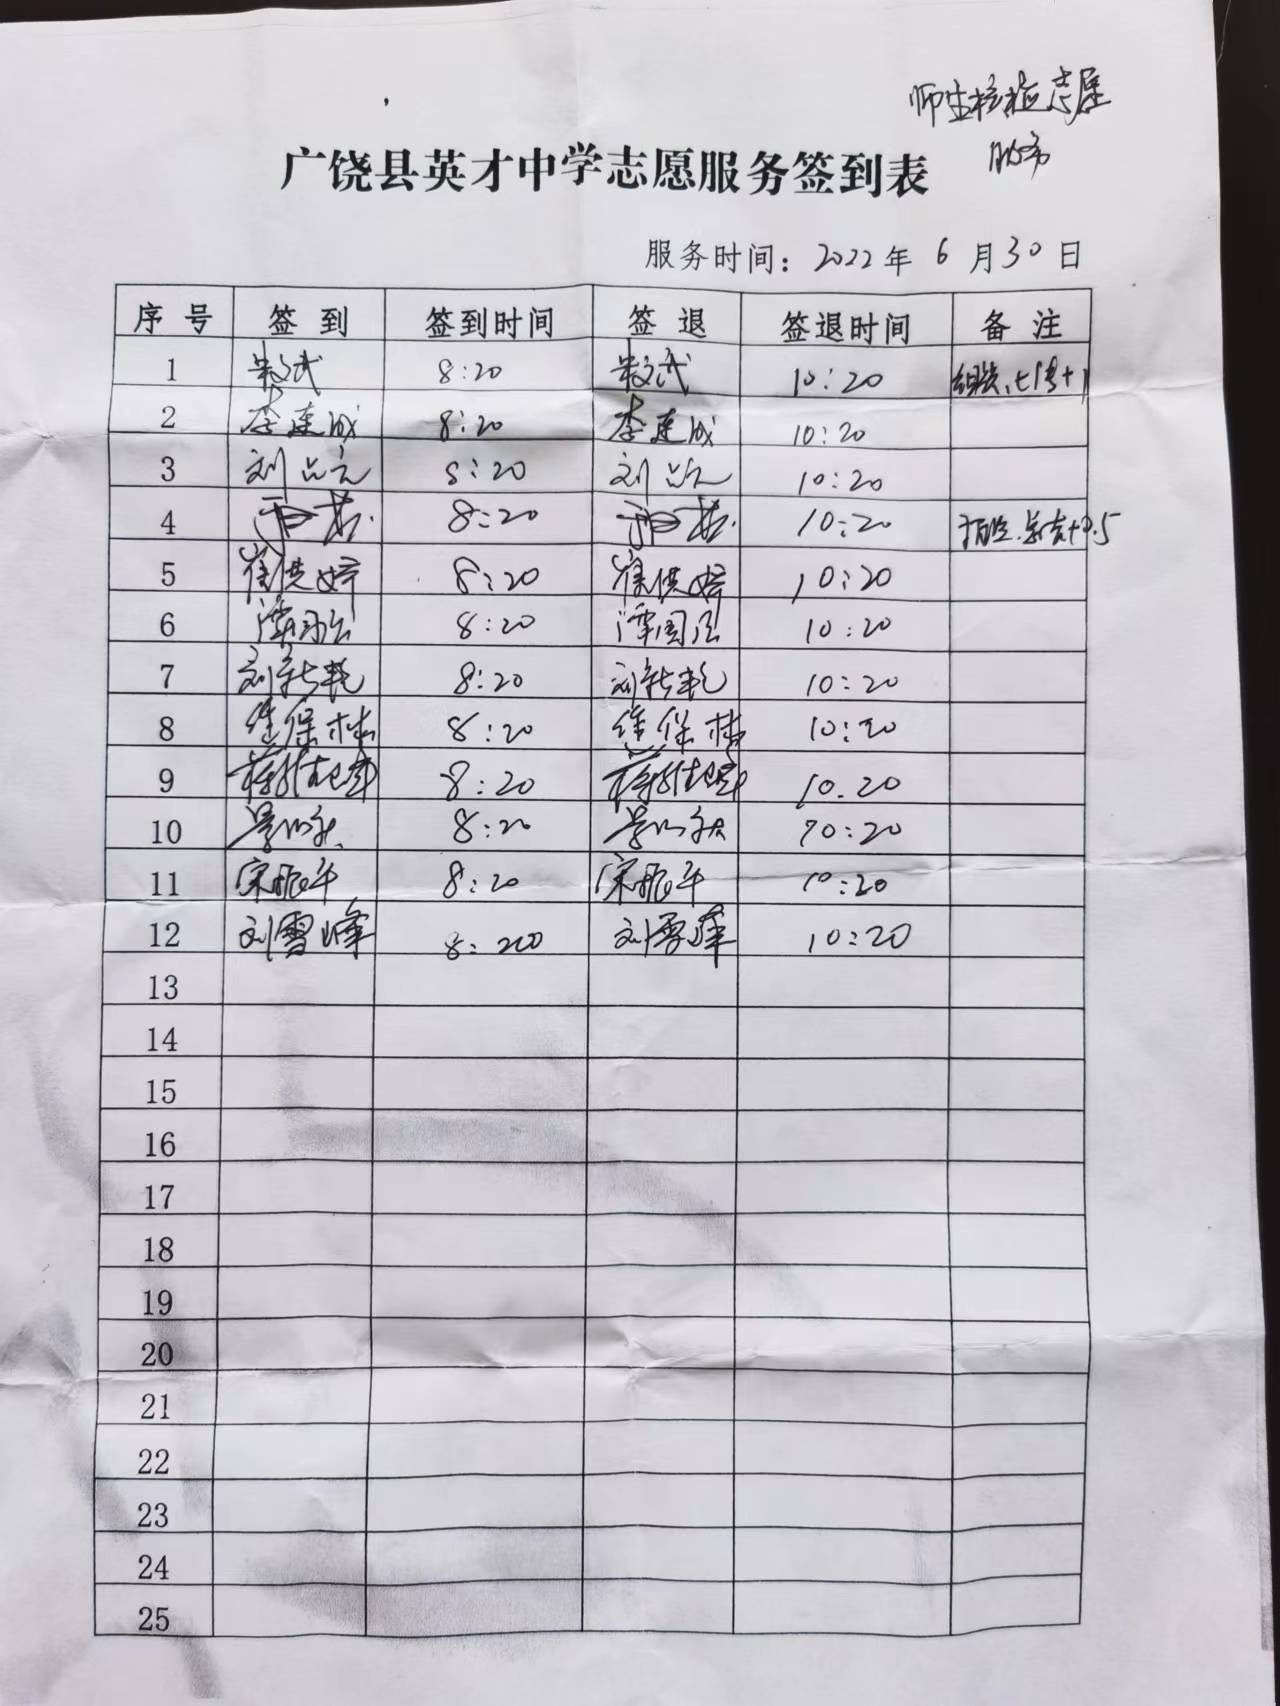 师生核检志愿
服务
广饶县英才中学志愿服务签到表
服务时间：2022年 6 月30日
序 号 签 到 签到时间 签 退 签退时间 备 注
1 8:20 10:20
2 李建成 8:20 李建成 10:20
3 刘品元 8:20 刘品元 10:20
4 8:20 10:20
5 崔洪婷 8:20 崔洪婷 10:20
6 8:20 10:20
7 刘新艳 8:20 刘新艳 10:20
8 8:20 10:20
9 8:20 10.20
10 8:20 10:20
11 宋振平 8:20 宋振平 10:20
12 刘雪峰 8:20 刘雪峰 10:20
13
14
15
16
17
18
19
20
21
22
23
24
25